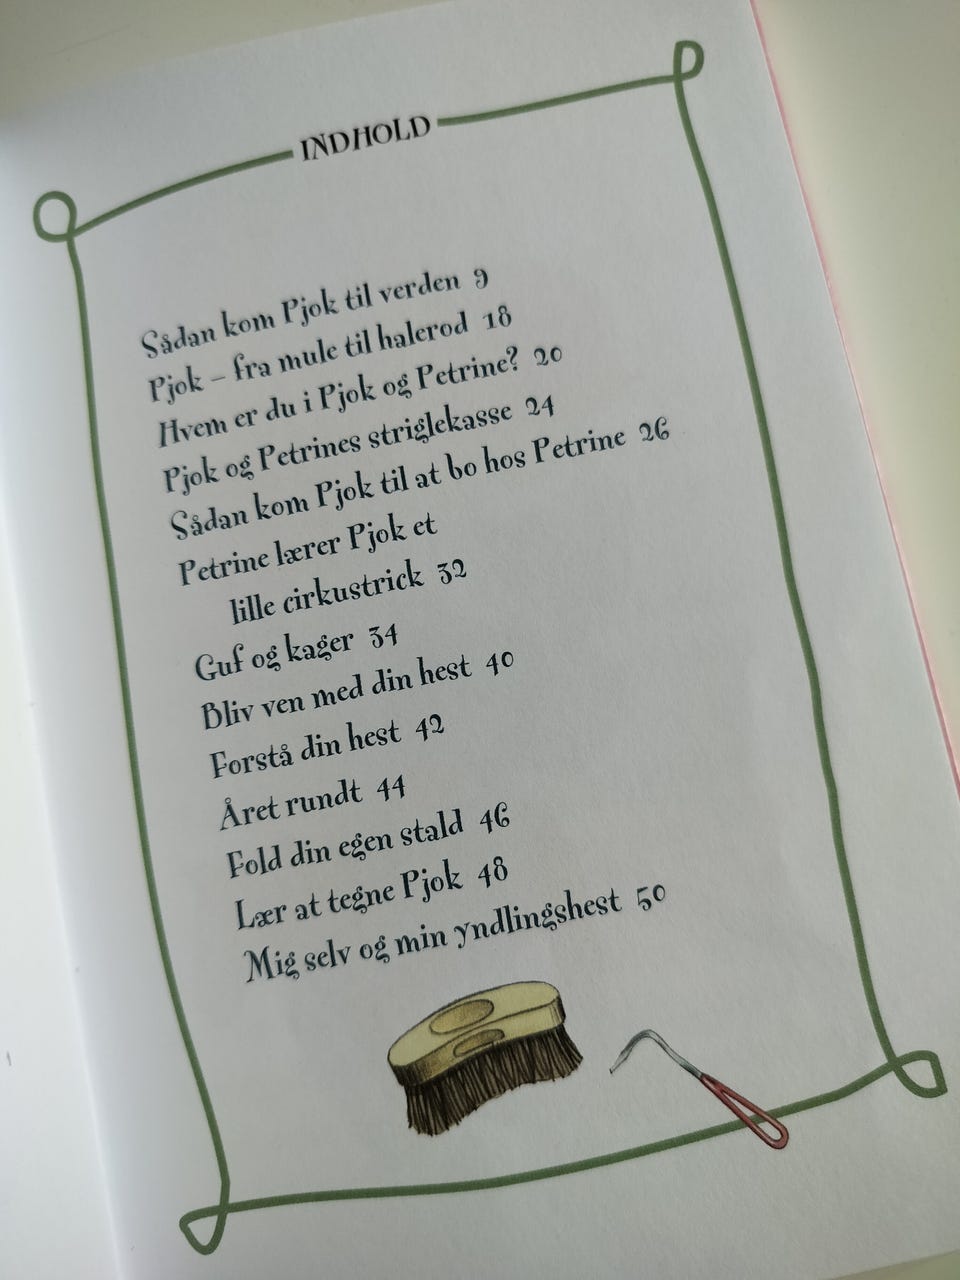 INDHOLD
Sådan kom Pjok til verden 9
Pjok – fra mule til halerod 18
Hvem er du i Pjok og Petrine? 20
Pjok og Petrines striglekasse 24
Sådan kom Pjok til at bo hos Petrine 26
Petrine lærer Pjok et
lille cirkustrick 32
Guf og kager 34
Bliv ven med din hest 40
Forstå din hest 42
Året rundt 44
Fold din egen stald 46
Lær at tegne Pjok 48
Mig selv og min yndlingshest 50